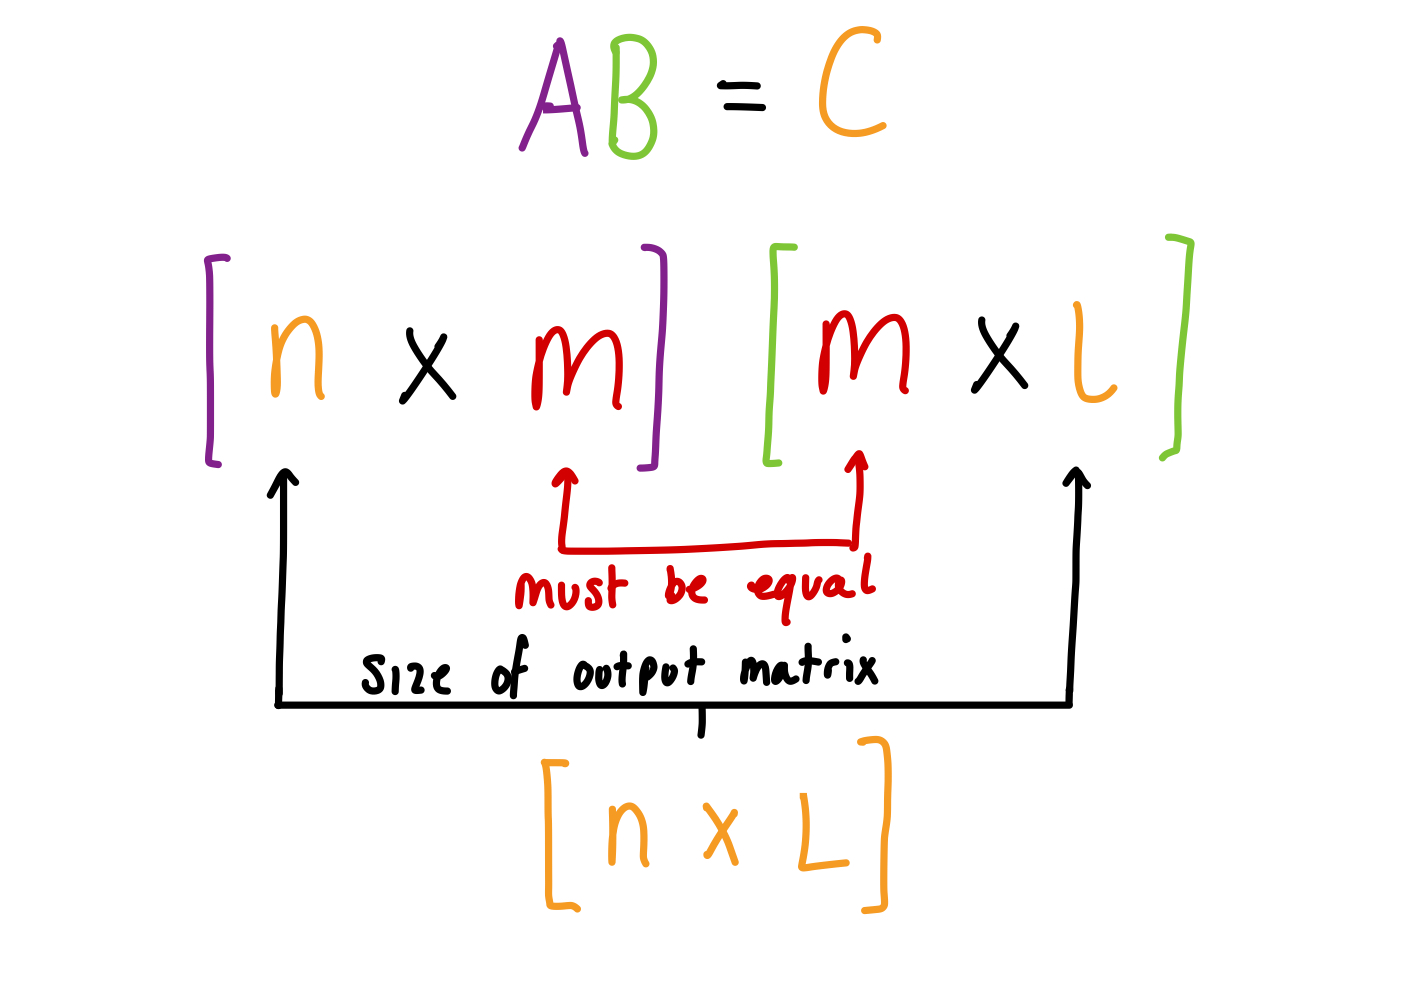 AB = C
[n x m] [m x l]
must be equal
size of output matrix
[n x L]